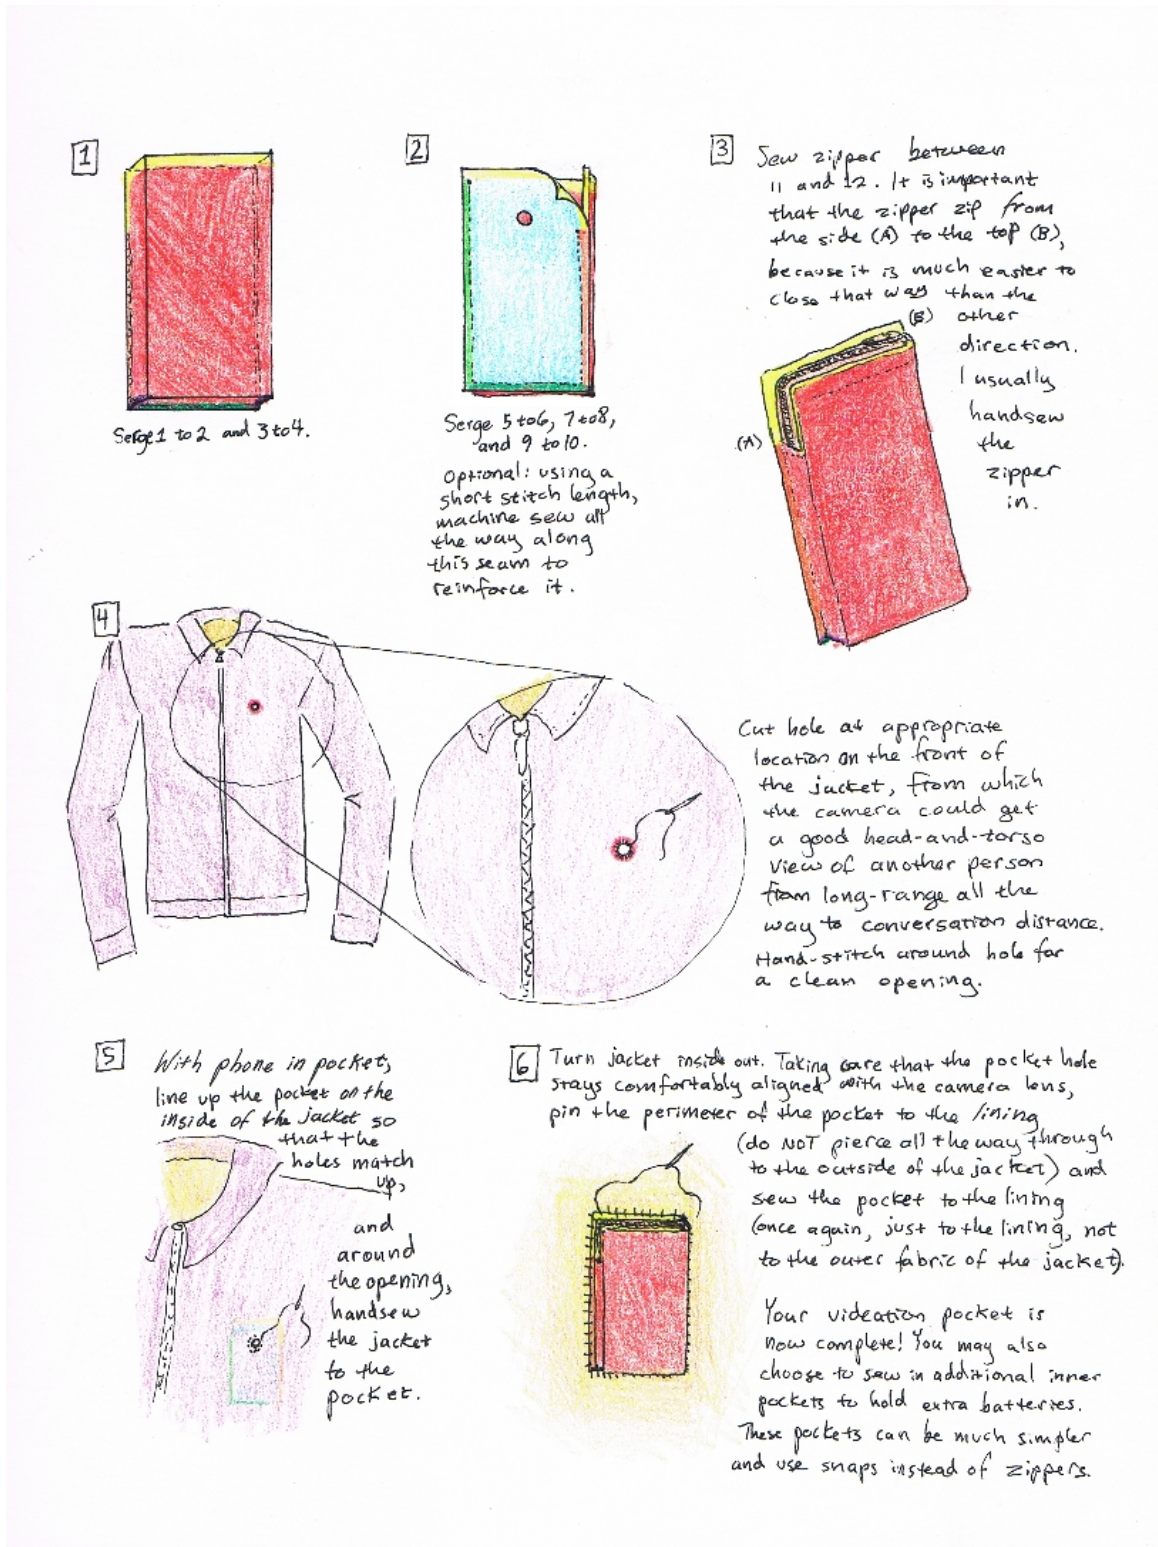 1
Serge 1 to 2 and 3 to 4.
2
Serge 5 to 6, 7 to 8,
and 9 to 10.
Optional: using a
short stitch length,
machine sew all
the way along
this seam to
reinforce it.
3
Sew zipper between
11 and 12. It is important
that the zipper zip from
the side (A) to the top (B),
because it is much easier to
close that way than the
(B) other
direction.
I usually
handsew
(A) the
zipper
in.
4
Cut hole at appropriate
location on the front of
the jacket, from which
the camera could get
a good head-and-torso
view of another person
from long-range all the
way to conversation distance.
Hand-stitch around hole for
a clean opening.
5
With phone in pocket,
line up the pocket on the
inside of the jacket so
that the
holes match
up,
and
around
the opening,
handsew
the jacket
to the
pocket.
6
Turn jacket inside out. Taking care that the pocket hole
stays comfortably aligned with the camera lens,
pin the perimeter of the pocket to the lining
(do NOT pierce all the way through
to the outside of the jacket) and
sew the pocket to the lining
(once again, just to the lining, not
to the outer fabric of the jacket).
Your videation pocket is
now complete! You may also
choose to sew in additional inner
pockets to hold extra batteries.
These pockets can be much simpler
and use snaps instead of zippers.